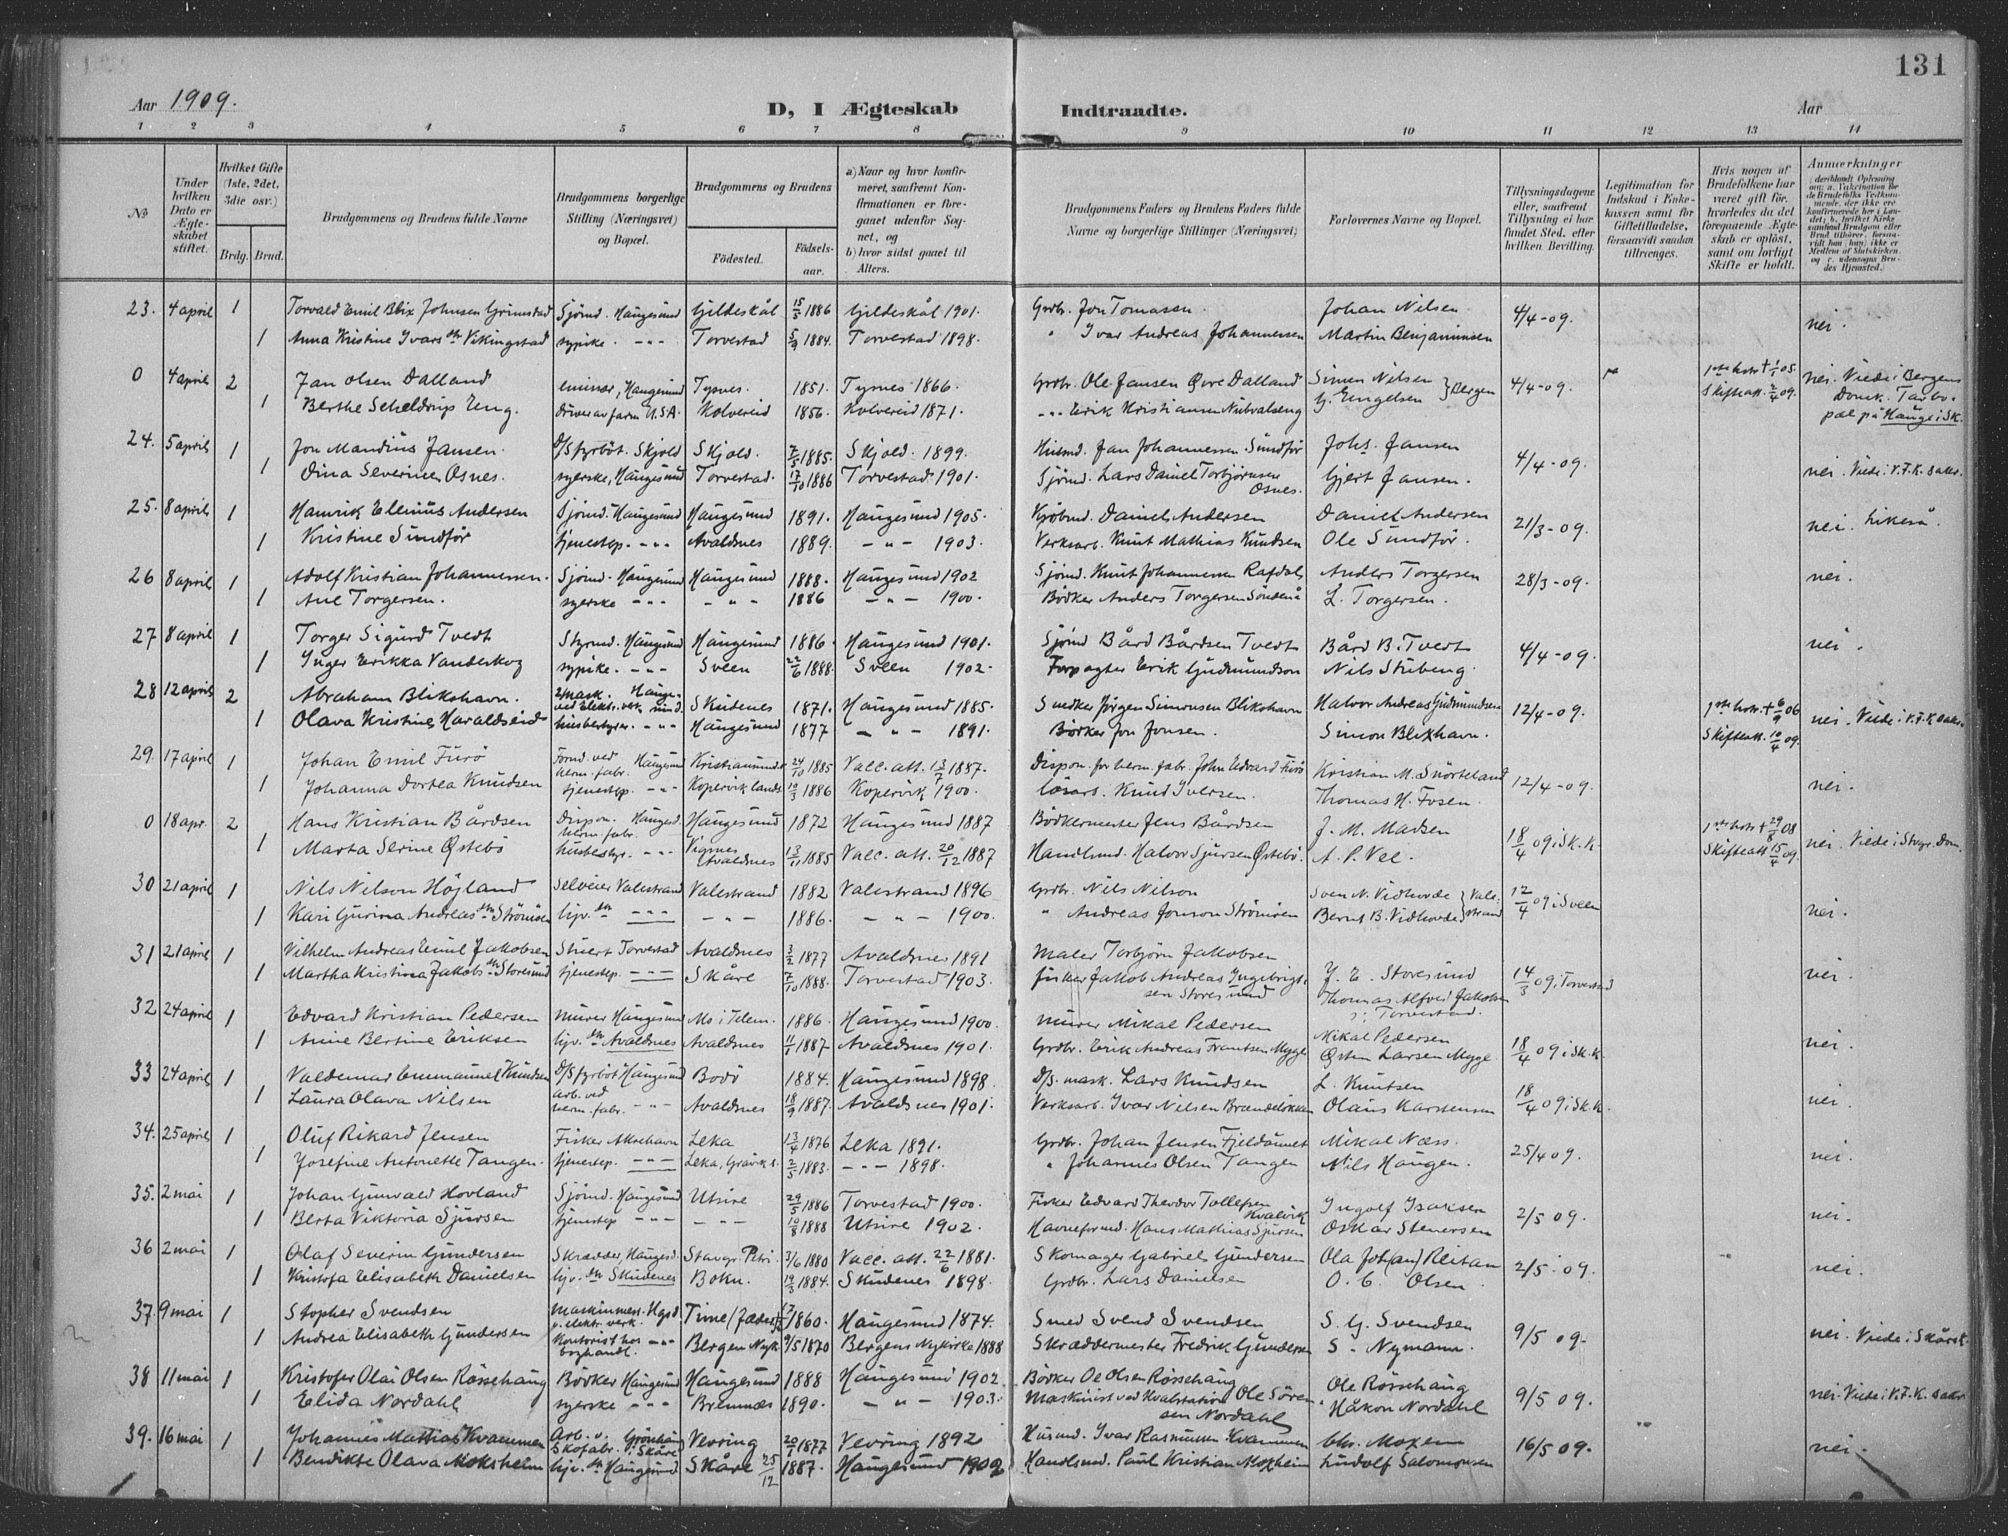 131
Aar 1909.
D, I Ægteskab Indtraadte.
Aar
1 2 3 4 5 6 7 8 9 10 11 12 13 14
№
Under hvilken Dato er Ægteskabet stiftet.
Hvilket Gifte (1ste, 2det, 3die osv.)
Brdg. Brud.
Brudgommens og Brudens fulde Navne
Brudgommens borgerlige Stilling (Næringsvei) og Bopæl.
Brudgommens og Brudens
Födested. Födselsaar.
a) Naar og hvor konfirmeret, saafremt Konfirmationen er foregaaet udenfor Sognet, og
b) hvor sidst gaaet til Alters.
Brudgommens Faders og Brudens Faders fulde Navne og borgerlige Stillinger (Næringsvei)
Forlovernes Navne og Bopæl.
Tillysningsdagene eller, saafremt Tillysning ei har fundet Sted, efter hvilken Bevilling.
Legitimation for Indskud i Enkekassen samt for Giftetilladelse, forsaavidt saadan tiltrænges.
Hvis nogen af Brudefolkene har været gift för, hvorledes da det foregaaende Ægteskab er oplöst, samt om lovligt Skifte er holdt.
Anmerkninger
23. 4 april 1 Torvald Emil Blix Johnsen Grimstad Sjömd. Haugesund Gildeskål 15/5 1886 Gildeskål 1901. Grdbr. Jon Tomasen Johan Nilsen 4/4-09. nei.
1 Anna Kristine Ivarsdtr Vikingstad sypike. -"- Torvestad 5/9 1884. Torvestad 1898. " Ivar Andreas Johannessen Martin Benjaminsen
0 4 april 2 Jan Olsen Dalland emissær, Haugesund Tysnes. 1851. Tysnes 1866. Grdbr. Ole Jansen Övre Dalland Simon Nilsen } Bergen 4/4-09. nei. Viede i Bergens Domk.
1 Berthe Scheldrup Eng. driver av farm U.S.A. Kolvereid 1856. Kolvereid 1871. -"- Erik Kristiansen G. Engelsen Skifteatt. 2/4 09. pæl på Hauge i Sk.
24. 5 april 1 Jon Mandius Jansen. D/S fyrböt. Skjold Skjold. 7/5 1885. Skjold. 1899. Husmd. Jan Johannessen Sundför Johs. Jansen 4/4-09. nei. Viede i V.F.K. sakr.
1 Dina Severine Osnes. syerske, Haugesund Torvestad. 17/10 1886 Torvestad. 1901. Sjömd. Lars Daniel Torbjörnsen Osnes. Gjert Jansen.
25. 8 april 1 Hamrik Elenius Andersen Sjömd. Haugesund Haugesund 1891. Haugesund 1905. Kjöbmd. Daniel Andersen Daniel Andersen 21/3-09. nei. Likeså.
1 Kristine Sundför tjenestep. -"- Avaldsnes 1889. -"- 1903. Verksarb. Knut Mathias Knudsen Ole Sundför.
26 8 april 1 Adolf Kristian Johannessen. Sjömd. Haugesund Haugesund 1888. Haugesund 1902 Sjömd. Knut Johannessen Rafdal Anders Torgersen 28/3-09. nei.
1 Ane Torgersen. syerske -"- -"- 1886 -"- 1900. Bödker Anders Torgersen Söndenå L. Torgersen.
27 8 april 1 Torger Sigurd Tvedt Styrmd. Haugesund Haugesund 1886. Haugesund 1901. Sjömd Bård Bårdsen Tvedt Bård B. Tvedt 4/4-09. nei.
1 Inger Erikka Vanderskog sypike. -"- Sveen 22/6 1888. Sveen 1902. Forpagter Erik Gudmundson Nils Stuberg.
28 12 april 2 Abraham Blikshavn. 2 mask. ved elektr. verk Haugesund. Skudenes 1871. Haugesund 1885. Snedker Jörgen Simonsen Blikshavn Halvor Andreas Gudmundsen 12/4-09. 1ste hstr. + 6/9 06 nei. Viede i V.F.K. sakr.
1 Olava Kristine Haraldseid husbestyrer. -"- Haugesund 1877 -"- 1891. Bödker Jon Jonsen. Simon Blixhavn. Skifteatt. 10/4 09.
29. 17 april 1 Johan Emil Furö Formd. ved herm. fabr. Haugesund Kristiansund 24/10 1885 Vacc. att. 13/7 1887. Dispon. for herm. fabr. John Edvard Furö Kristian M. Snörteland 12/4-09. nei.
1 Johanna Dortea Knudsen tjenestep. -"- Kopervik lands. 10/3 1886 Kopervik 1900. Lösarb. Knud Iversen. Thomas H. Fosen.
0 18 apr. 2 Hans Kristian Bårdsen Dispon. herm. fabr. Haugesd. Haugesund 1872 Haugesund 1887 Bödkermester Jens Bårdsen J. M. Madsen 18/4 09 i Sk.K. 1ste hstr. + 29/8 08 nei.
1 Marta Serine Östebö husbestyr. -"- Vigsnes Avaldsnes 13/11 1885 Vacc. att. 20/12 1887 Handlsmd. Halvor Sjursen Östebö. A. P. Vee. Skifteatt. 15/4 09.
30 21 april 1 Nils Nilson Höjland Selveier Valestrand Valestrand 1882 Valestrand 1896 Grdbr. Nils Nilson Sven N. Vidhovde } Valestrand 12/4 09 i Sveen nei.
1 Kari Gurina Andreasdtr Strömöen hjv. dtr -"- -"- 1886. -"- 1900. " Andreas Jonson Strömöen Bernt B. Vidhovde
31 21 april 1 Vilhelm Andreas Emil Jakobsen Stuert Torvestad Avaldsnes 3/2 1877 Avaldsnes 1891 Maler Torbjörn Jakobsen Y. E. Storesund 14/3 09 i Torvestad nei.
1 Martha Kristina Jakobsdtr Storesund tjenestep. -"- Skåre 7/10 1888. Torvestad 1903. fisker Jakob Andreas Ingebrigtsen Storesund Thomas Alfred Jakobsen i Torvestad.
32 24 april 1 Edvard Kristian Pedersen murer Haugesund Mo i Telem. 1886. Haugesund 1900. murer Mikal Pedersen Mikal Pedersen 18/4 09 i Sk.K. nei.
1 Anne Bertine Eriksen hjv. dtr Avaldsnes Avaldsnes 11/1 1887 Avaldsnes 1901. Grdbr. Erik Andreas Frantsen Mygge Östen Larsen Mygge
33 24 april 1 Valdemar Emmanuel Knudsen D/S fyrböt Haugesund Bodö 1884. Haugesund 1898. D/S. mask. Lars Knudsen L. Knutsen 18/4 09 i Sk.K. nei.
1 Laura Olava Nilsen arb. ved herm. fabr. -"- Avaldsnes 18/9 1887. Avaldsnes 1901. Verksarb. Ivar Nilsen Brændelökken Olaus Karstensen
34. 25 april 1 Oluf Rikard Jensen Fisker Akrehavn Leka 13/4 1876 Leka 1891. Grdbr. Johan Jensen Fjeldånnet Mikal Næss. 25/4 09. nei.
1 Josefine Antonette Tangen. tjenestep. -"- Leka, Gravik s. 2/5 1883. -"- 1898. " Johannes Olsen Tangen Nils Haugen.
35. 2 mai 1 Johan Gunvald Hovland Sjömd. Haugesund Utsire 29/5 1886 Torvestad 1900. Fisker Edvard Theodor Tollefsen Kvalvik Ingolf Isaksen 2/5 09. nei.
1 Berta Viktoria Sjursen tjenestep -"- -"- 10/8 1888 Utsire 1902. Havneformd. Hans Mathias Sjursen Oskar Stenersen
36 2 mai 1 Olaf Severin Gundersen Skrædder, Haugesd. Stavgr. Petri. 3/6 1880 Vacc. att. 22/6 1881. Skomager Gabriel Gundersen Ola Joh(an) Reitan 2/5-09. nei.
1 Kristofa Elisabeth Danielsen hjv. dtr Skudenes Bokn. 19/3 1884. Skudenes 1898. Grdbr. Lars Danielsen O. C. Olsen.
37. 9 mai 1 Stopher Svendsen Maskinmes. v. elektr. verk. Hgsd. Time (Jæderen) 1860. Haugesund 1874. Smed Svend Svendsen S. G. Svendsen 9/5 09. nei. Viede i Skåre k.
1 Andrea Elisabeth Gundersen Kontorist hos boghandl. -"- Bergen Nyk. 9/5 1870 Bergens Nykirke 1888 Skræddermester Fredrik Gundersen S. Nymann.
38 11 mai 1 Kristofer Olai Olsen Rössehaug Bödker Haugesund Haugesund 1888 Haugesund 1902. Bödker Ole Olsen Rössehaug Ole Rössehaug 9/5 09. nei. Viede i V.F.K. sakr.
1 Elida Nordahl syerske -"- Bremnæs 1890. -"- 1903. Maskinist ved Kvalstation Ole Sörensen Nordahl Håkon Nordahl
39. 16 mai 1 Johannes Mathias Kvammen Arb. v. Skofabr. Grönhaug i Skåre Vevring 20/1 1877 Vevring 1892 Husmd. Ivar Rasmussen Kvammen Chr. Moxem 16/5 09. nei.
1 Bendikte Olava Moksheim hjv. dtr Haugesund Skåre 25/12 1887. Haugesund 1902 Handlsmd. Paul Kristian Moxheim Ludolf Salomonsen